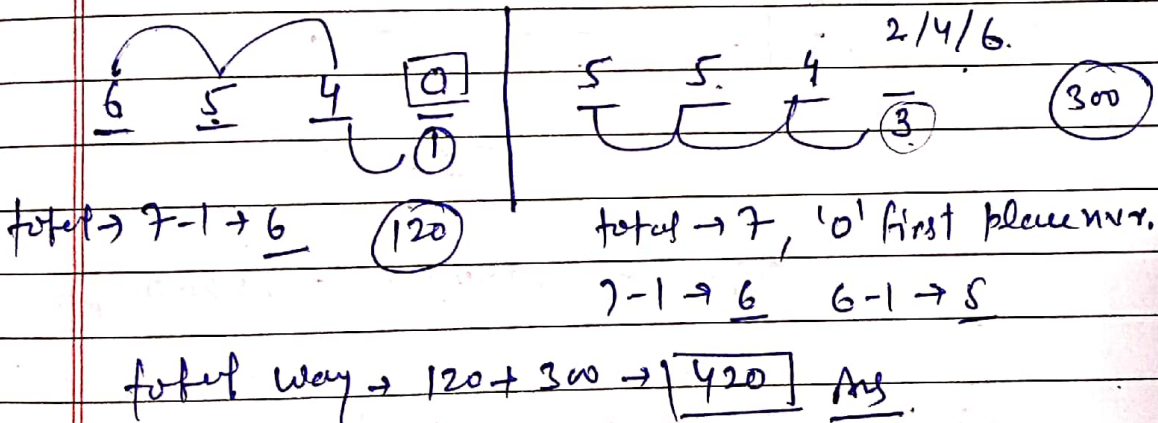 2/4/6.
6 5 4 0 5 5. 4
1 3 300
total → 7-1 → 6 120 total → 7, '0' first place
7-1 → 6 6-1 → 5
total way → 120 + 300 → 420 Ans.